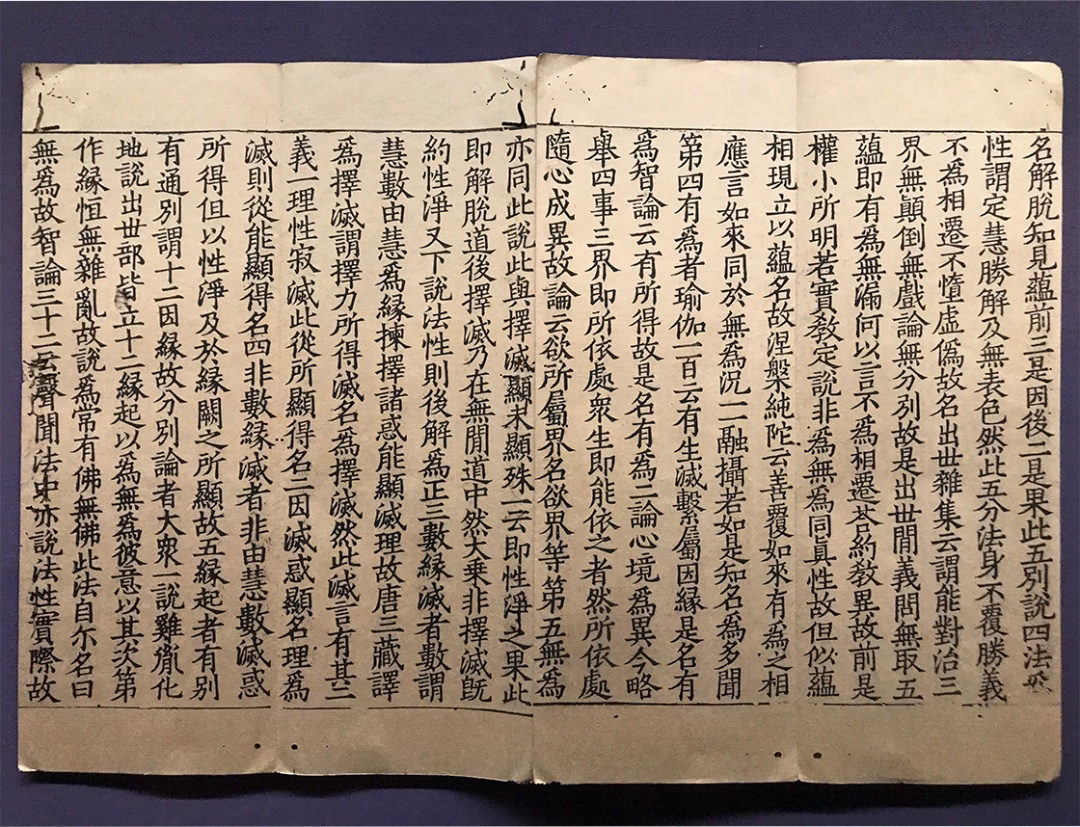 名解脫知見蘊前三是因後二是果此五別說四法爲
性謂定慧勝解及無表色然此五分法身不覆勝義
不爲相遷不墮虛僞故名出世雜集云謂能對治三
界無顚倒無戲論無分別故是出世間義問無取五
蘊即有爲無漏何以言不爲相遷荅約教異故前是
權小所明若實敎定說非爲無爲同眞性故但似蘊
相現立以蘊名故涅槃純陀云善覆如來有爲之相
應言如來同於無爲況一一融攝若如是知名爲多聞
第四有爲者瑜伽一百云有生滅繫屬因緣是名有
爲智論云有所得故是名有爲二論心境爲異今略
舉四事三界即所依處衆生即能依之者然所依處
隨心成異故論云欲所屬界名欲界等第五無爲
亦同此說此與擇滅顯未顯殊一云即性淨之果此
即解脫道後擇滅乃在無間道中然大乗非擇滅旣
約性淨又下說法性則後解爲正三數緣滅者數謂
慧數由慧爲緣揀擇諸惑能顯滅理故唐三藏譯
爲擇滅謂擇力所得滅名爲擇滅然此滅言有其二
義一理性寂滅此從所顯得名二因滅惑顯名理爲
滅則從能顯得名四非數緣滅者非由慧數滅惑
所得但以性淨及於緣闕之所顯故五緣起者有別
有通別謂十二因緣故分別論者大衆一說雞胤化
地說出世部皆立十二緣起以爲無爲彼意以其次第
作緣恒無雜亂故說爲常有佛無佛此法自尓名曰
無爲故智論三十二云聲聞法中亦說法性實際故